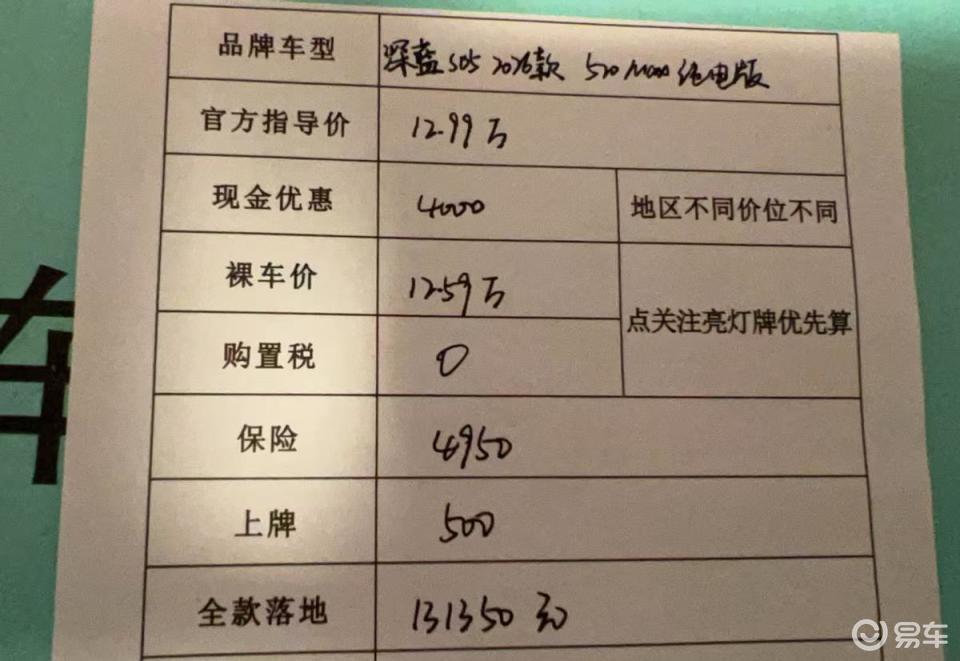 品牌车型 深蓝S05 2026款 510Max纯电版
官方指导价 12.99万
现金优惠 4000 地区不同价位不同
裸车价 12.59万
点关注亮灯牌优先算
购置税 0
保险 4950
上牌 500
全款落地 131350元
车
易车